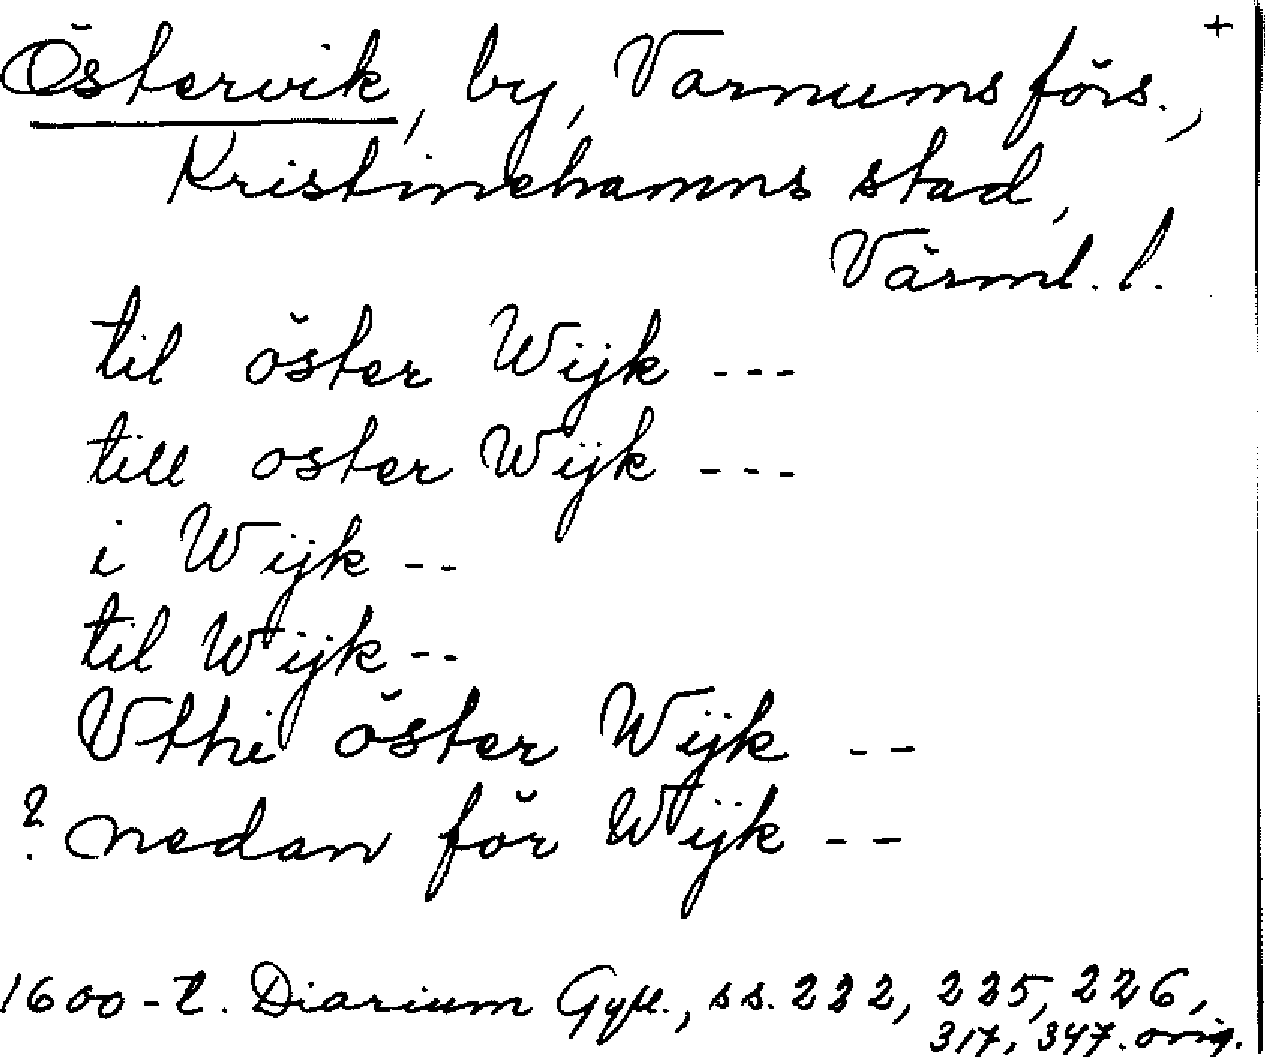 +
Östervik, by, Varnums förs.,
Kristinehamns stad,
Värml. l.
til öster Wijk ---
till oster Wijk ---
i Wijk --
til Wijk --
Vthi öster Wijk --
? nedan för Wijk --
1600-t. Diarium Gyll., ss. 222, 225, 226,
317, 347. orig.